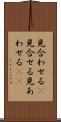 見合わせる
見合せる見あ
わせる